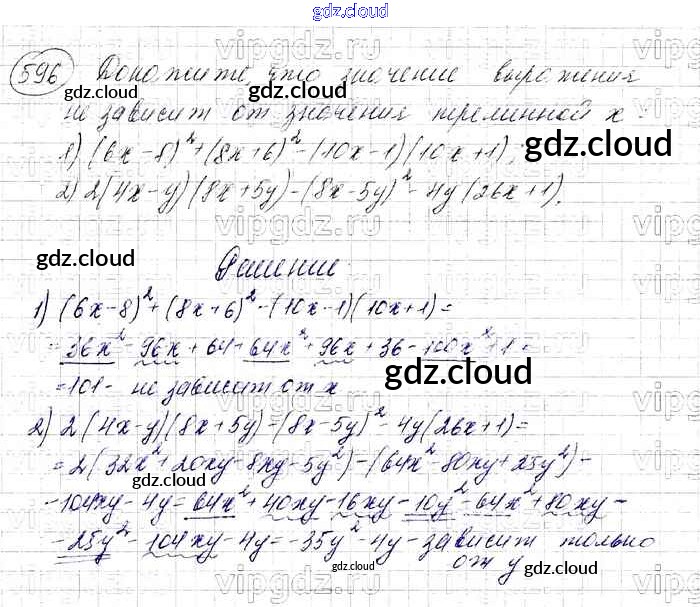 gdz.cloud
596 Докажите, что значение выражения
не зависит от значения переменной x.
1) (6x-8)²+(8x+6)²-(10x-1)(10x+1);
2) 2(4x-y)(8x+5y)-(8x-5y)²-4y(26x+1).
gdz.cloud
gdz.cloud
gdz.cloud
gdz.cloud
Решение
1) (6x-8)²+(8x+6)²-(10x-1)(10x+1)=
=36x²-96x+64+64x²+96x+36-100x²+1=
=101- не зависит от x
gdz.cloud
2) 2(4x-y)(8x+5y)-(8x-5y)²-4y(26x+1)=
=2(32x²+20xy-8xy-5y²)-(64x²-80xy+25y²)-
-104xy-4y=64x²+40xy-16xy-10y²-64x²+80xy-
-25y²-104xy-4y=-35y²-4y-зависит только
от y
gdz.cloud
vipgdz.ru